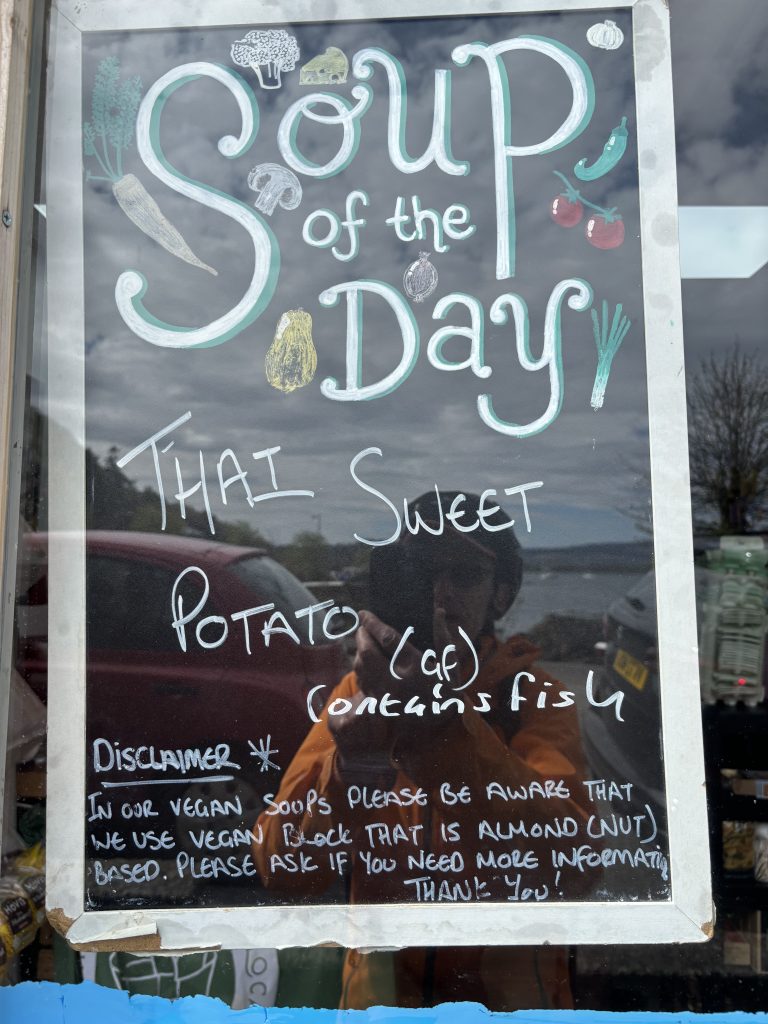 Soup
of the
Day
THAI SWEET
POTATO (GF)
Contains fish
DISCLAIMER *
IN OUR VEGAN SOUPS PLEASE BE AWARE THAT
WE USE VEGAN BLOCK THAT IS ALMOND (NUT)
BASED. PLEASE ASK IF YOU NEED MORE INFORMATIO
THANK YOU!